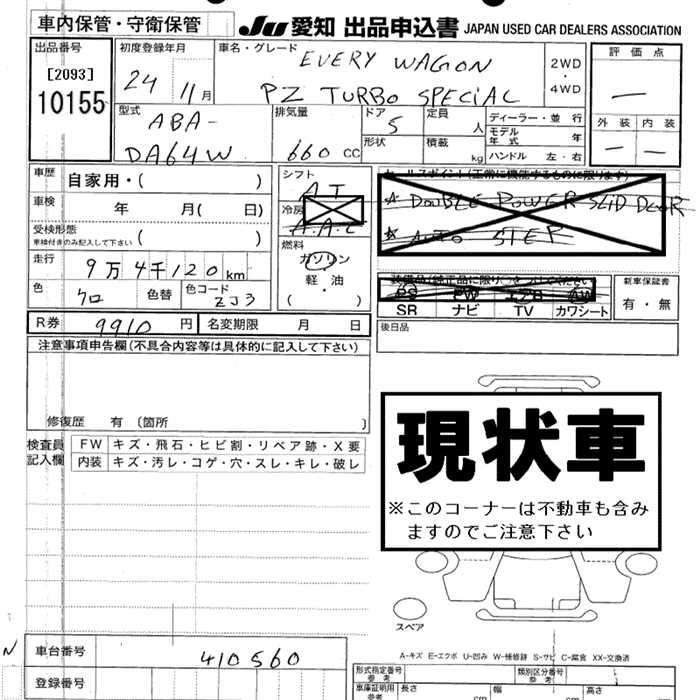 車内保管・守衛保管
JU 愛知 出品申込書 JAPAN USED CAR DEALERS ASSOCIATION
出品番号
[2093]
10155
初度登録年月
24 11月
車名・グレード
EVERY WAGON
PZ TURBO SPECIAL
2WD
・
4WD
評価点
—
外装 内装
— —
型式
ABA-
DA64W
排気量
660 CC
ドア
5
形状
定員 人
積載 kg
ディーラー・並行
モデル年式 年
ハンドル 左・右
車歴 自家用・( )
車検 年 月( 日)
受検形態
車検付きのみ記入して下さい ( )
走行 9万4千120km
色 クロ 色替 色コード ZJ3
シフト
AT
冷房
A.A.C
燃料
ガソリン
軽・油
( ・ )
セールスポイント(正常に機能するものに限ります)
☆ DOUBLE POWER SLID DOOR
☆ AUTO STEP
装備品(純正品に限り○をつけてください)
PS PW エアB AW
SR ナビ TV カワシート
新車保証書
有・無
R券 9910円 名変期限 月 日
後日品
注意事項申告欄(不具合内容等は具体的に記入して下さい)
修復歴 有〔箇所 〕
検査員記入欄
FW キズ・飛石・ヒビ割・リペア跡・X要
内装 キズ・汚レ・コゲ・穴・スレ・キレ・破レ
現状車
※このコーナーは不動車も含み
ますのでご注意下さい
スペア
A-キズ E-エクボ U-凹み W-補修跡 S-サビ C-腐食 XX-交換済
N
車台番号 410560
登録番号
形式指定番号
参考
類別区分番号
参考
車庫証明用
参考
長さ cm
幅 cm
高さ cm